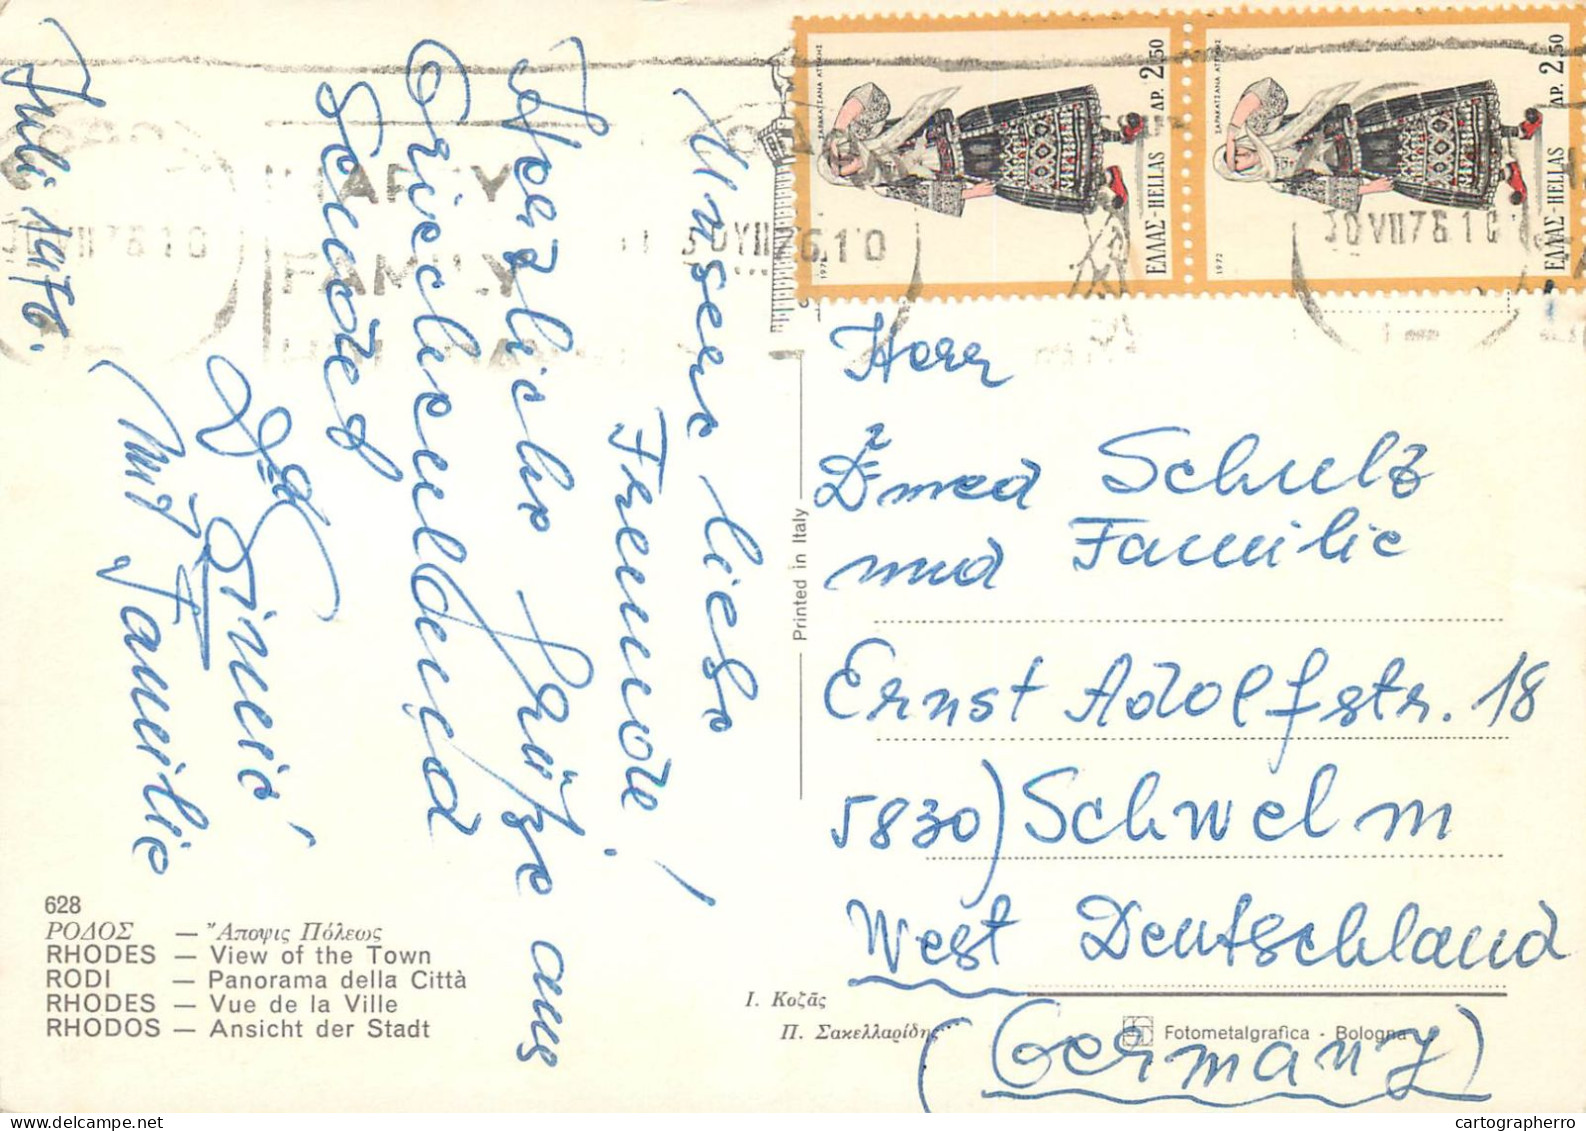 Juli 1976.
Unsere liebe
Freunde!
Herzliche Grüße aus
Griechenland
sendet
und Familie
ΣΑΡΑΚΑΤΣΑΝΑ ΑΤΤΙΚΗΣ
ΔΡ. 2.50
ΕΛΛΑΣ-HELLAS
1972
ΣΑΡΑΚΑΤΣΑΝΑ ΑΤΤΙΚΗΣ
ΔΡ. 2.50
ΕΛΛΑΣ-HELLAS
1972
HAPPY
FAMILY
30 VII 76 10
30 VII 76 10
30 VII 76 10
Herr
Dr med Schulz
und Familie
Ernst Adolfstr. 18
5830) Schwelm
West Deutschland
(Germany)
Printed in Italy
628
ΡΟΔΟΣ — Ἄποψις Πόλεως
RHODES — View of the Town
RODI — Panorama della Città
RHODES — Vue de la Ville
RHODOS — Ansicht der Stadt
Ι. Κοζᾶς
Π. Σακελλαρίδης
Fotometalgrafica - Bologna
cartographerro